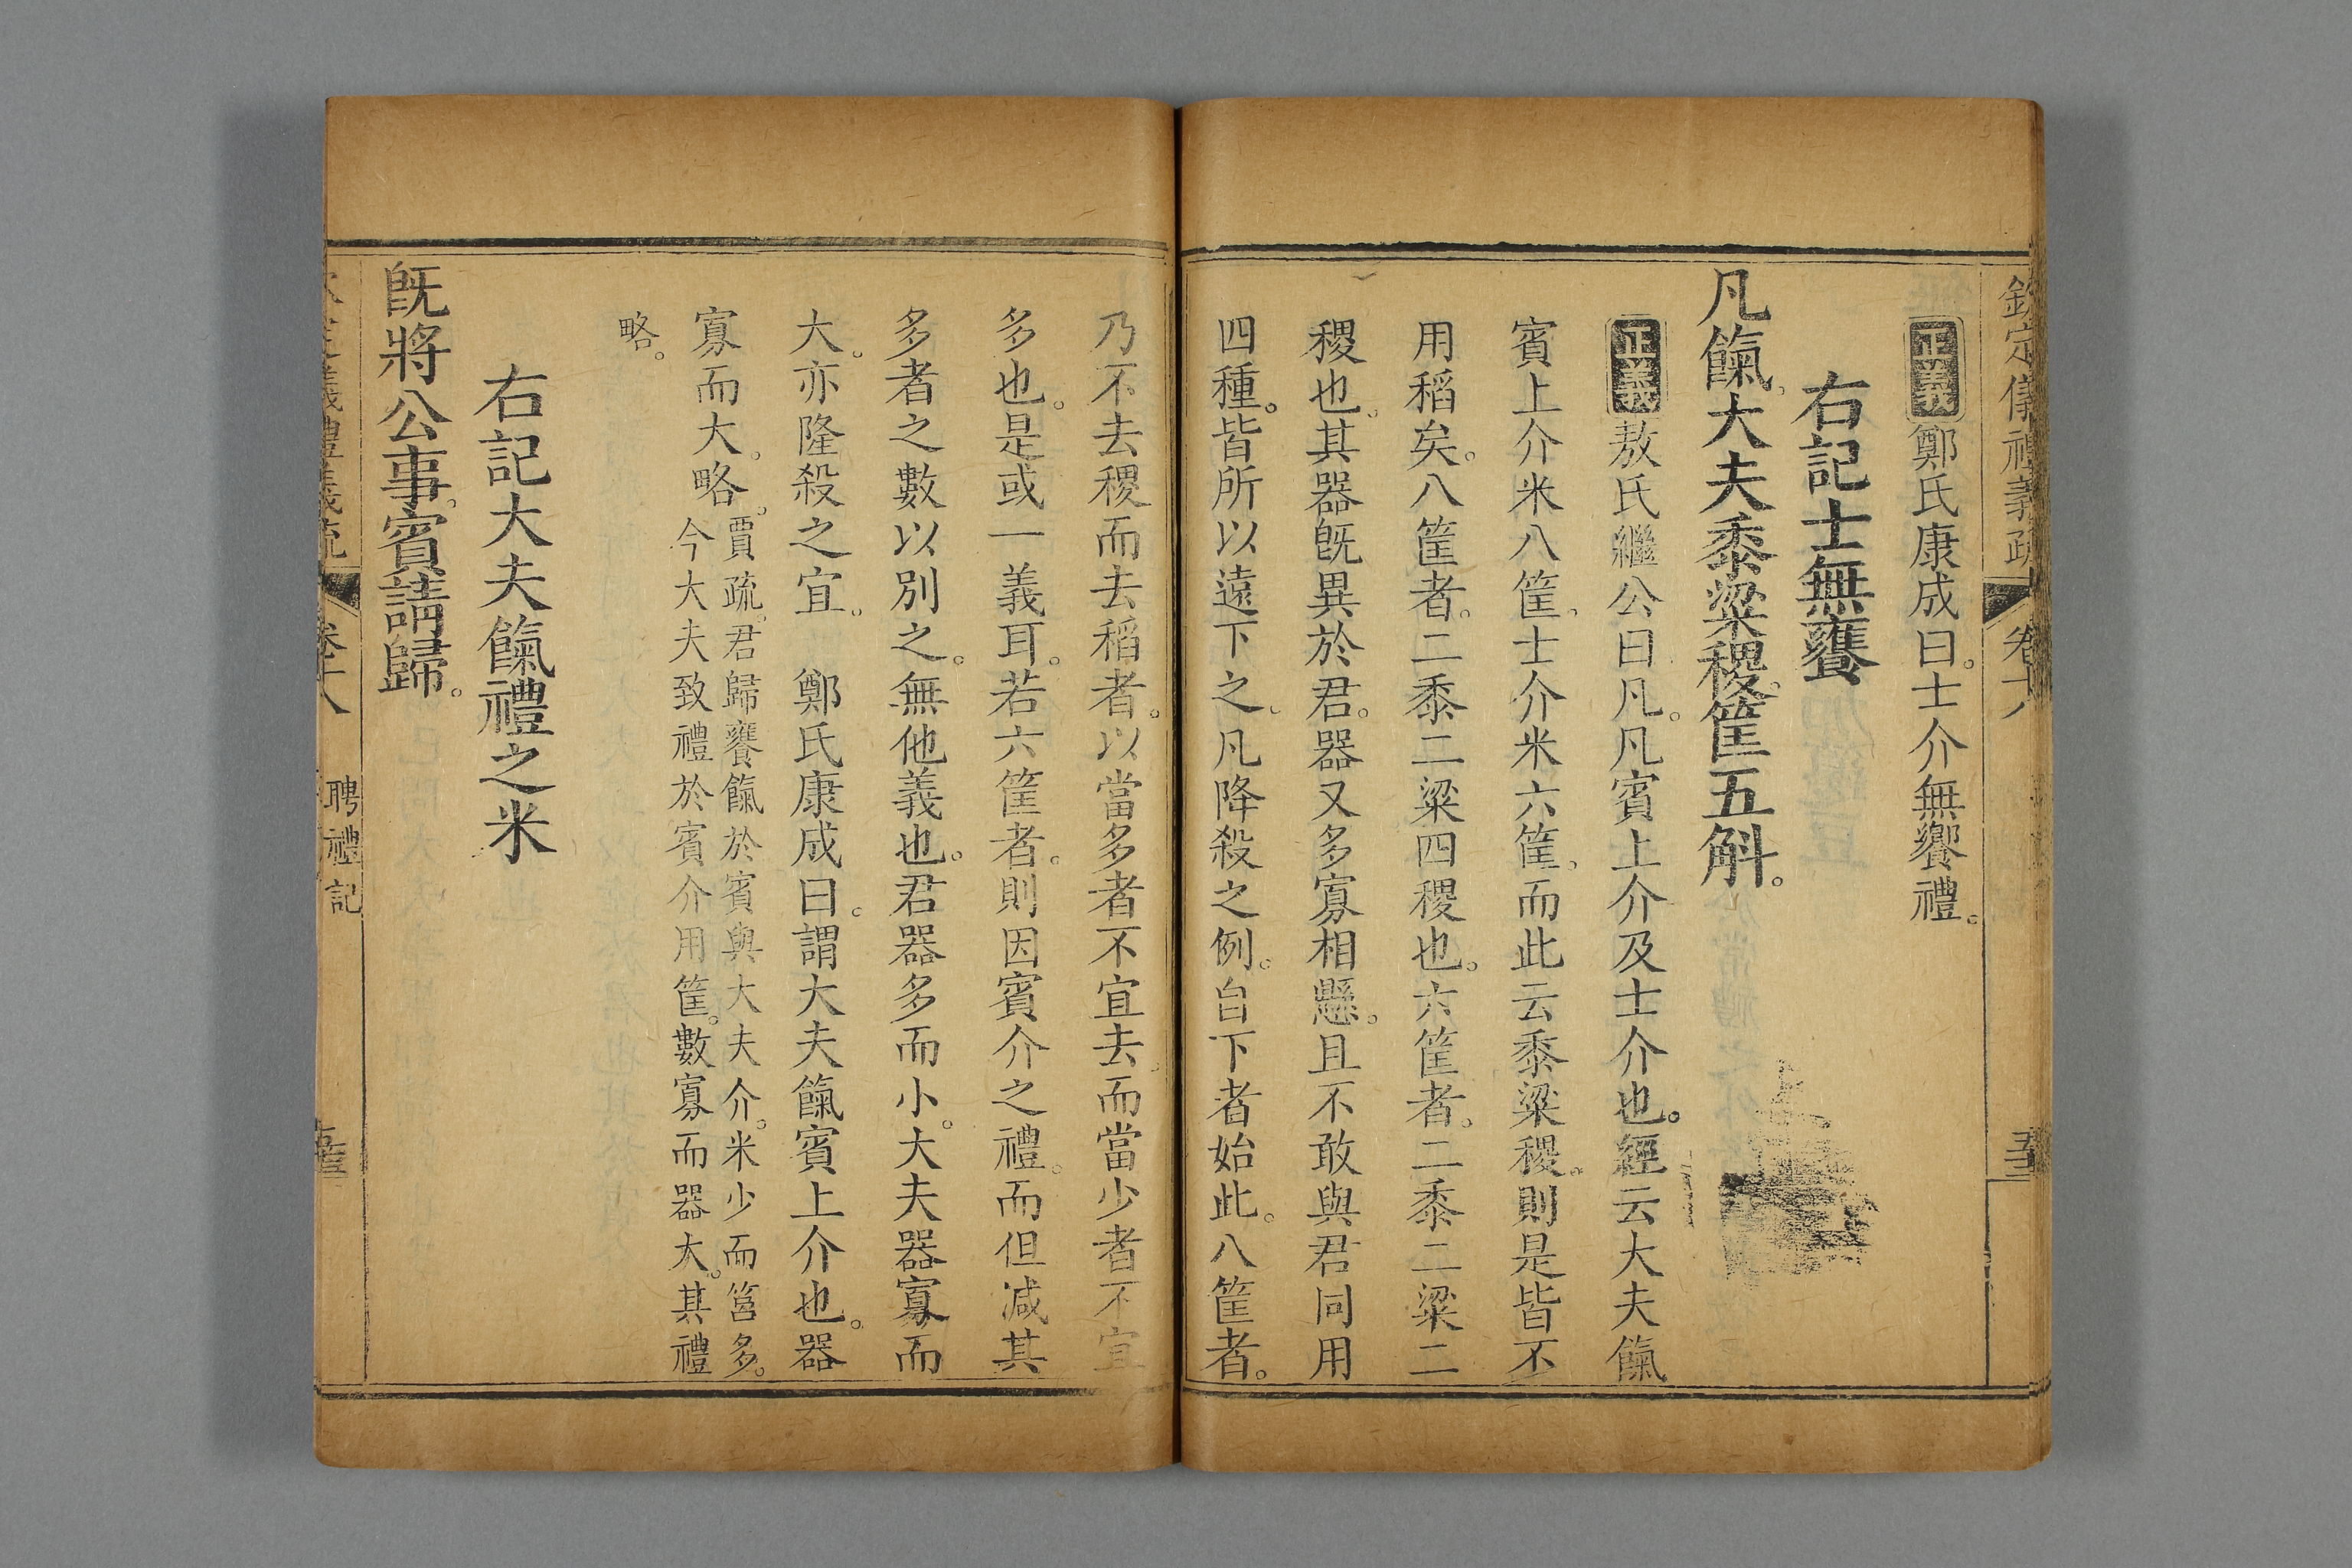 欽定儀禮義疏 卷十八 五三
正義鄭氏康成曰。士介無饗禮。
右記士無饔
凡餼。大夫黍粱稷。筐五斛。
正義敖氏繼公曰凡。凡賓上介及士介也。經云大夫餼
賓上介米八筐。士介米六筐。而此云黍粱稷。則是皆不
用稻矣。八筐者。二黍二粱四稷也。六筐者。二黍二粱二
稷也。其器旣異於君。器又多寡相懸。且不敢與君同用
四種。皆所以遠下之。凡降殺之例。自下者始此。八筐者。
乃不去稷而去稻者。以當多者不宜去。而當少者不宜
多也。是或一義耳。若六筐者。則因賓介之禮。而但減其
多者之數以別之。無他義也。君器多而小。大夫器寡而
大。亦隆殺之宜。 鄭氏康成曰。謂大夫餼賓上介也。器
寡而大。略。賈疏。君歸饔餼於賓與大夫介。米少而筥多。
今大夫致禮於賓介用筐。數寡而器大。其禮
略。
右記大夫餼禮之米
旣將公事。賓請歸。
義禮義疏 卷十八 聘禮記 五三